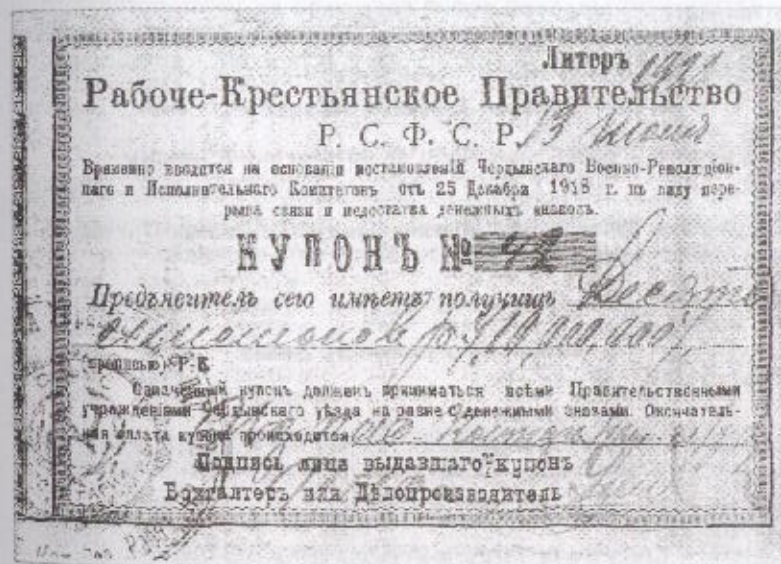 Литеръ
Рабоче-Крестьянское Правительство
Р. С. Ф. С. Р.
Временно вводится на основаніи постановленій Чердынскаго Военно-Революціон-
наго и Исполнительнаго Комитетовъ отъ 25 Декабря 1918 г. въ виду пере-
рыва связи и недостатка денежныхъ знаковъ.
КУПОНЪ №
Предъявитель сего имѣетъ получить Десять
милліоновъ р. 10,000,000
(прописью) Р. К.
Означенный купонъ долженъ приниматься всѣми Правительственными
учрежденіями Чердынскаго уѣзда на равне съ денежными знаками. Окончатель-
ная оплата купона происходитъ
Подпись лица выдавшаго купонъ
Бухгалтеръ или Дѣлопроизводитель